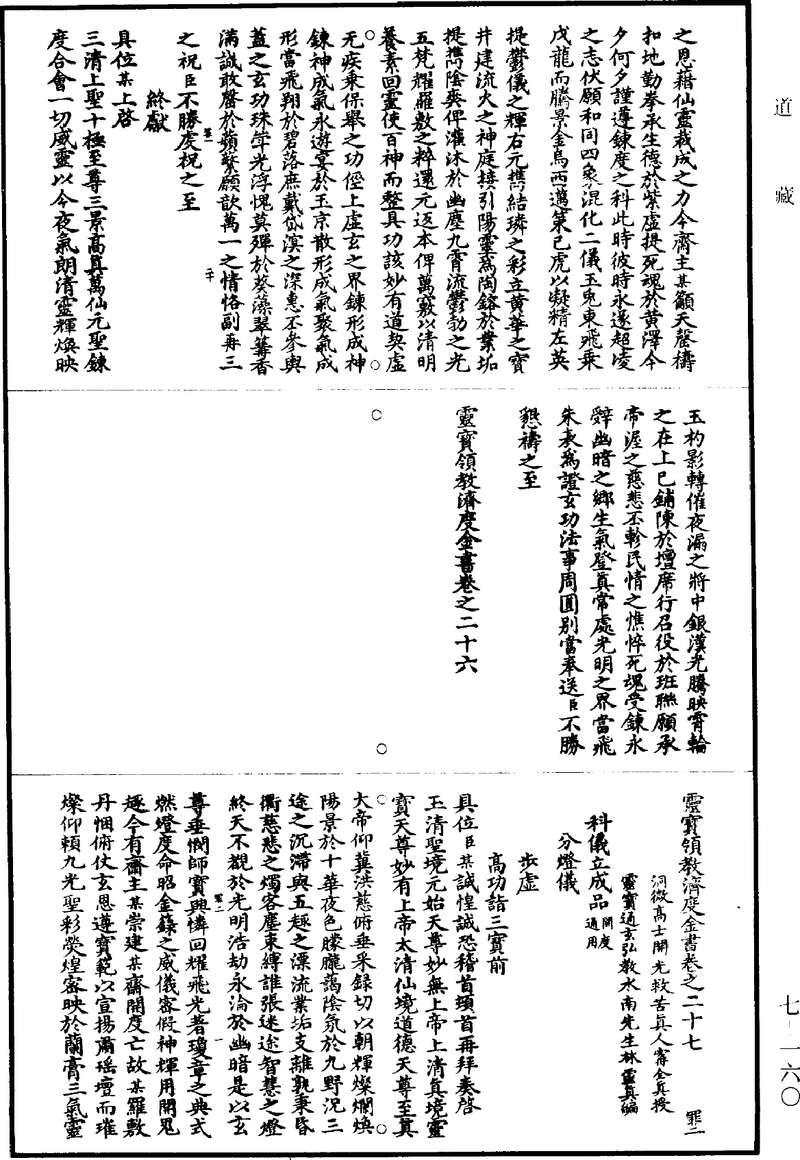 道藏
之恩藉仙靈裁成之力今齋主某籲天罄禱
扣地勤拳承生德於紫虛提死魂於黃澤今
夕何夕謹遵鍊度之科此時彼時永遂超凌
之志伏願和同四象混化二儀玉兔東飛乘
戊龍而騰景金烏西邁策己虎以凝精左英
提鬱儀之輝右元擕結璘之彩立黃華之寶
井建流火之神庭接引陽靈為陶鎔於業垢
提擕陰爽俾灌沐於幽塵九霄流鬱勃之光
五梵耀羅敷之粹還元返本俾萬竅以清明
養素回靈使百神而整具功該妙有道契虛
无疾乘保舉之功徑上虛玄之界鍊形成神
鍊神成氣永遊宴於玉京散形成氣聚氣成
形當飛翔於碧落庶戴岱溟之深惠丕參輿
蓋之玄功珠斝光浮愧莫殫於葵藻翠篝香
滿誠敢罄於蘋蘩願歆萬一之情恪副再三
之祝臣不勝虔祝之至
終獻
具位某上啓
三清上聖十極至尊三景高真萬仙元聖鍊
度合會一切威靈以今夜氣朗清靈輝煥映
玉杓影轉催夜漏之將中銀漢光騰映霄輪
之在上已鋪陳於壇席行召役於班聯願承
帝渥之慈悲丕軫民情之憔悴死魂受鍊永
辭幽暗之鄉生氣登真常處光明之界當飛
朱表為證玄功法事周圓別當奉送臣不勝
懇禱之至
靈寶領教濟度金書卷之二十六
靈寶領教濟度金書卷之二十七
罪二
洞微高士開光救苦真人寗全真授
靈寶通玄弘教水南先生林靈真編
科儀立成品
開度通用
分燈儀
步虛
高功詣三寶前
具位臣某誠惶誠恐稽首頓首再拜奏啓
玉清聖境元始天尊妙無上帝上清真境靈
寶天尊妙有上帝太清仙境道德天尊至真
大帝仰冀洪慈俯垂采錄切以朝輝燦爛煥
陽景於十華夜色朦朧藹陰氛於九野況三
途之沉滯與五趣之漂流業垢支離孰秉昏
衢慈悲之燭客塵束縛誰張迷途智慧之燈
終天不覩於光明浩劫永淪於幽暗是以玄
尊垂憫師寶興憐回耀飛光著瓊章之典式
燃燈度命昭金籙之威儀容假神輝用開冥
趣今有齋主某崇建某齋開度亡故某羅敷
丹悃俯仗玄恩遵寶範以宣揚肅瑶壇而璀
燦仰賴九光聖彩熒煌密映於蘭膏三氣靈
七-一六〇